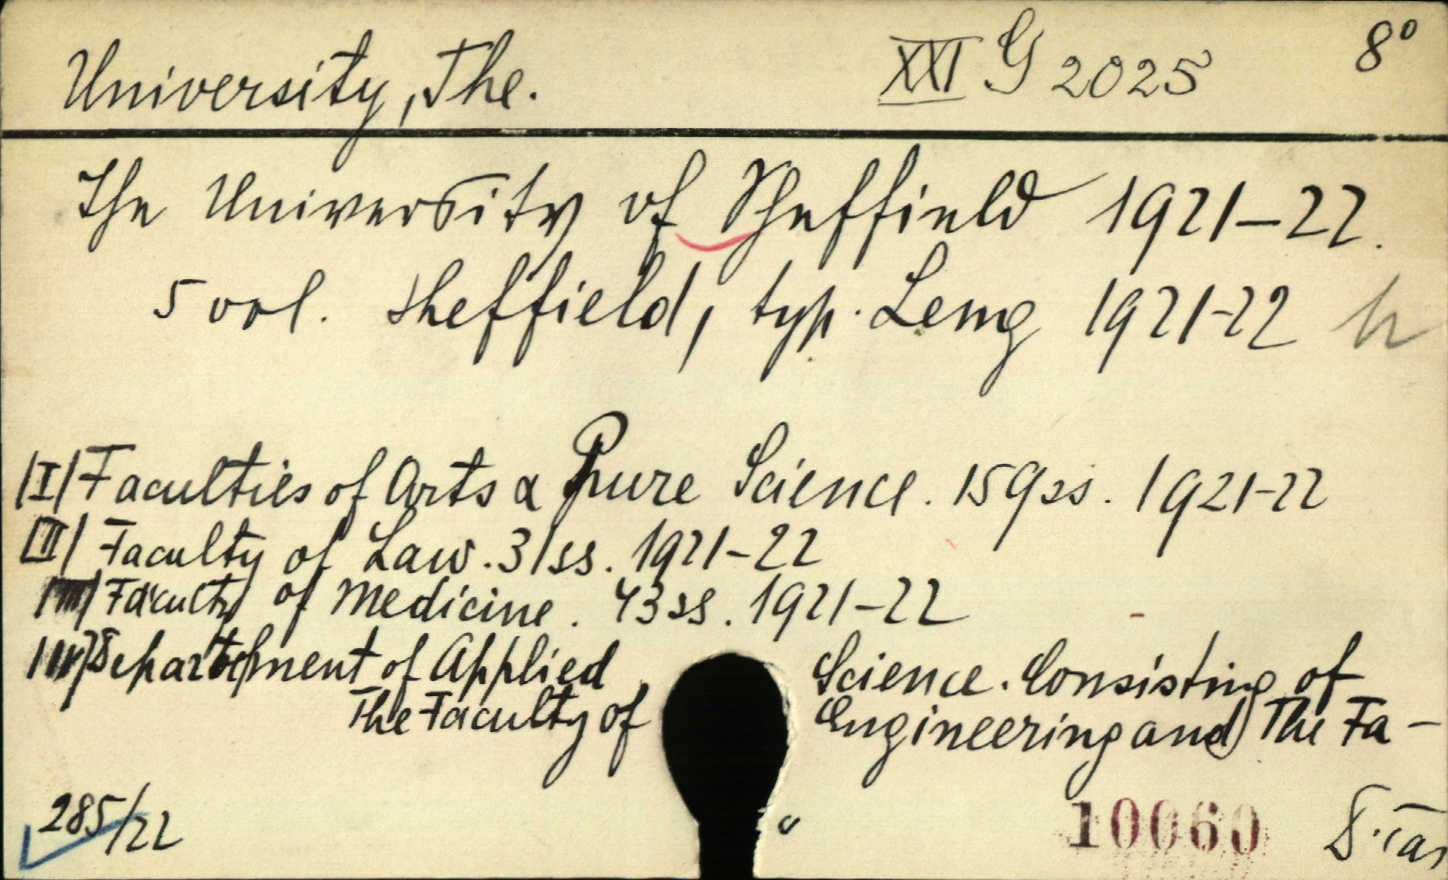 University, The. XXI G 2025 8°
The University of Sheffield 1921-22.
5 vol. Sheffield, typ. Leng 1921-22
|I| Faculties of Arts & Pure Science. 159 ss. 1921-22
|II| Faculty of Law. 31 ss. 1921-22
|III| Faculty of Medicine. 43 ss. 1921-22
|IV| Department of Applied Science. Consisting of
The Faculty of Engineering and The Fa-
285/22 10060